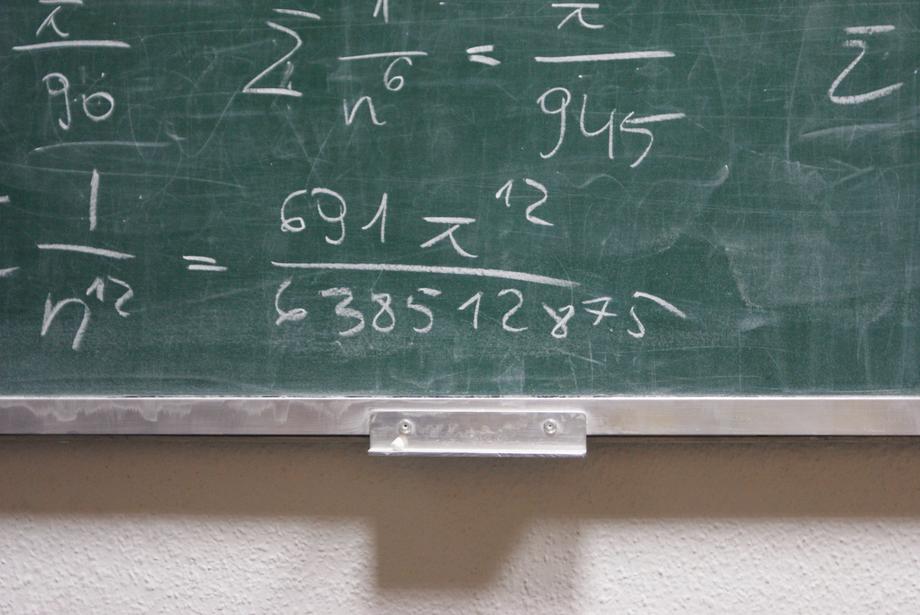 π/90 Σ 1/n⁶ = π/945 Σ
1/n¹² = 691 π¹²/638512875